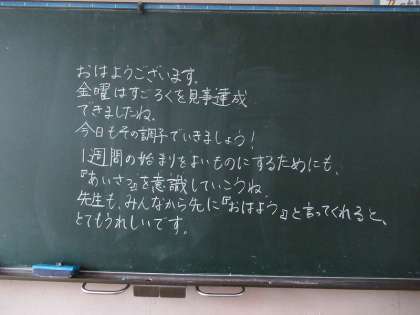 おはようございます。
金曜はすごろくを見事達成
できましたね。
今日もその調子でいきましょう！
1週間の始まりをよいものにするためにも、
『あいさつ』を意識していこうね。
先生も、みんなから先に『おはよう』と言ってくれると、
とてもうれしいです。